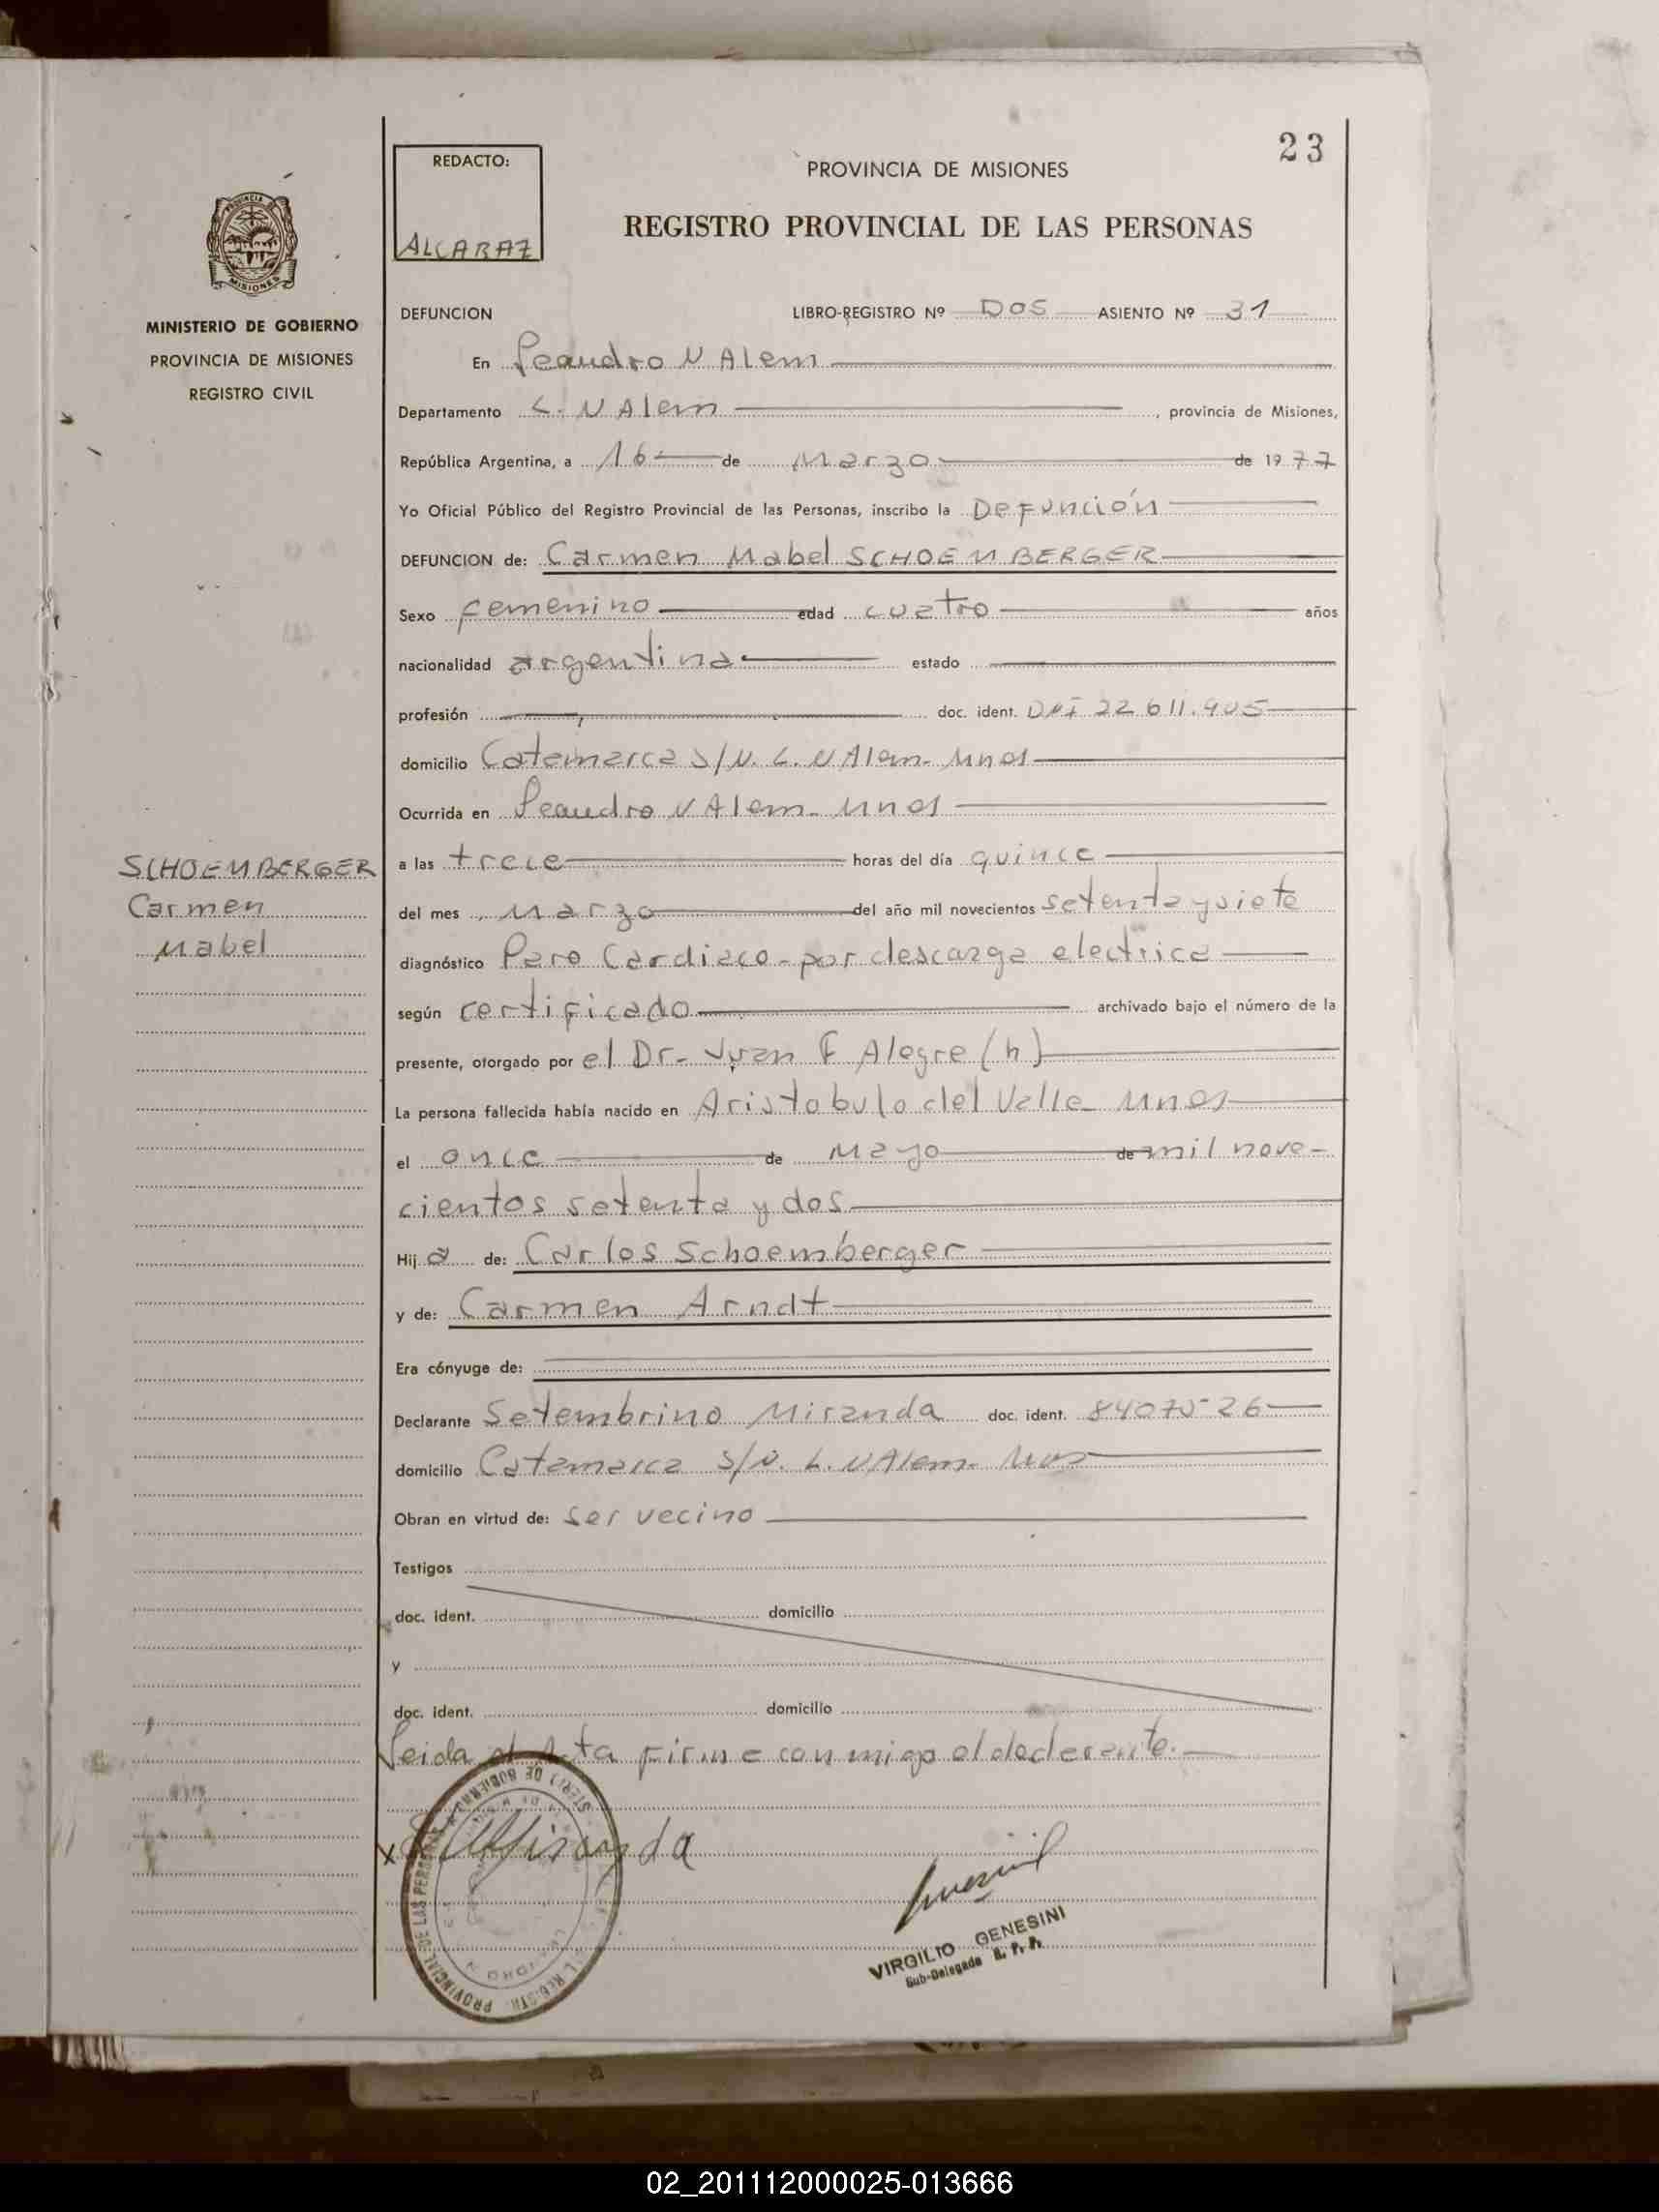 23
REDACTO:
ALCARAZ
PROVINCIA DE MISIONES
REGISTRO PROVINCIAL DE LAS PERSONAS
MINISTERIO DE GOBIERNO
PROVINCIA DE MISIONES
REGISTRO CIVIL
DEFUNCION LIBRO-REGISTRO Nº DOS ASIENTO Nº 31
En Leandro N Alem
Departamento L. N Alem, provincia de Misiones,
República Argentina, a 16 de Marzo de 1977
Yo Oficial Público del Registro Provincial de las Personas, inscribo la Defunción
DEFUNCION de: Carmen Mabel SCHOEMBERGER
Sexo femenino edad cuatro años
nacionalidad argentina estado
profesión doc. ident. DNI 22.611.905
domicilio Catamarca S/N. L. N Alem. Mnes
Ocurrida en Leandro N Alem. Mnes
SCHOEMBERGER
Carmen
Mabel
a las trece horas del día quince
del mes Marzo del año mil novecientos setenta y siete
diagnóstico Paro Cardiaco - por descarga electrica
según certificado archivado bajo el número de la
presente, otorgado por el Dr. Juan F Alegre (h)
La persona fallecida había nacido en Aristobulo del Valle Mnes
el once de Mayo de mil nove-
cientos setenta y dos
Hija de: Carlos Schoemberger
y de: Carmen Arndt
Era cónyuge de:
Declarante Setembrino Miranda doc. ident.
domicilio Catamarca S/N. L. N Alem. Mns
Obran en virtud de: ser vecino
Testigos
doc. ident. domicilio
y
doc. ident. domicilio
Leida el Acta firme conmigo el declarante.
x Miranda
VIRGILIO GENESINI
Sub-Delegado R. P. P.
02_201112000025-013666